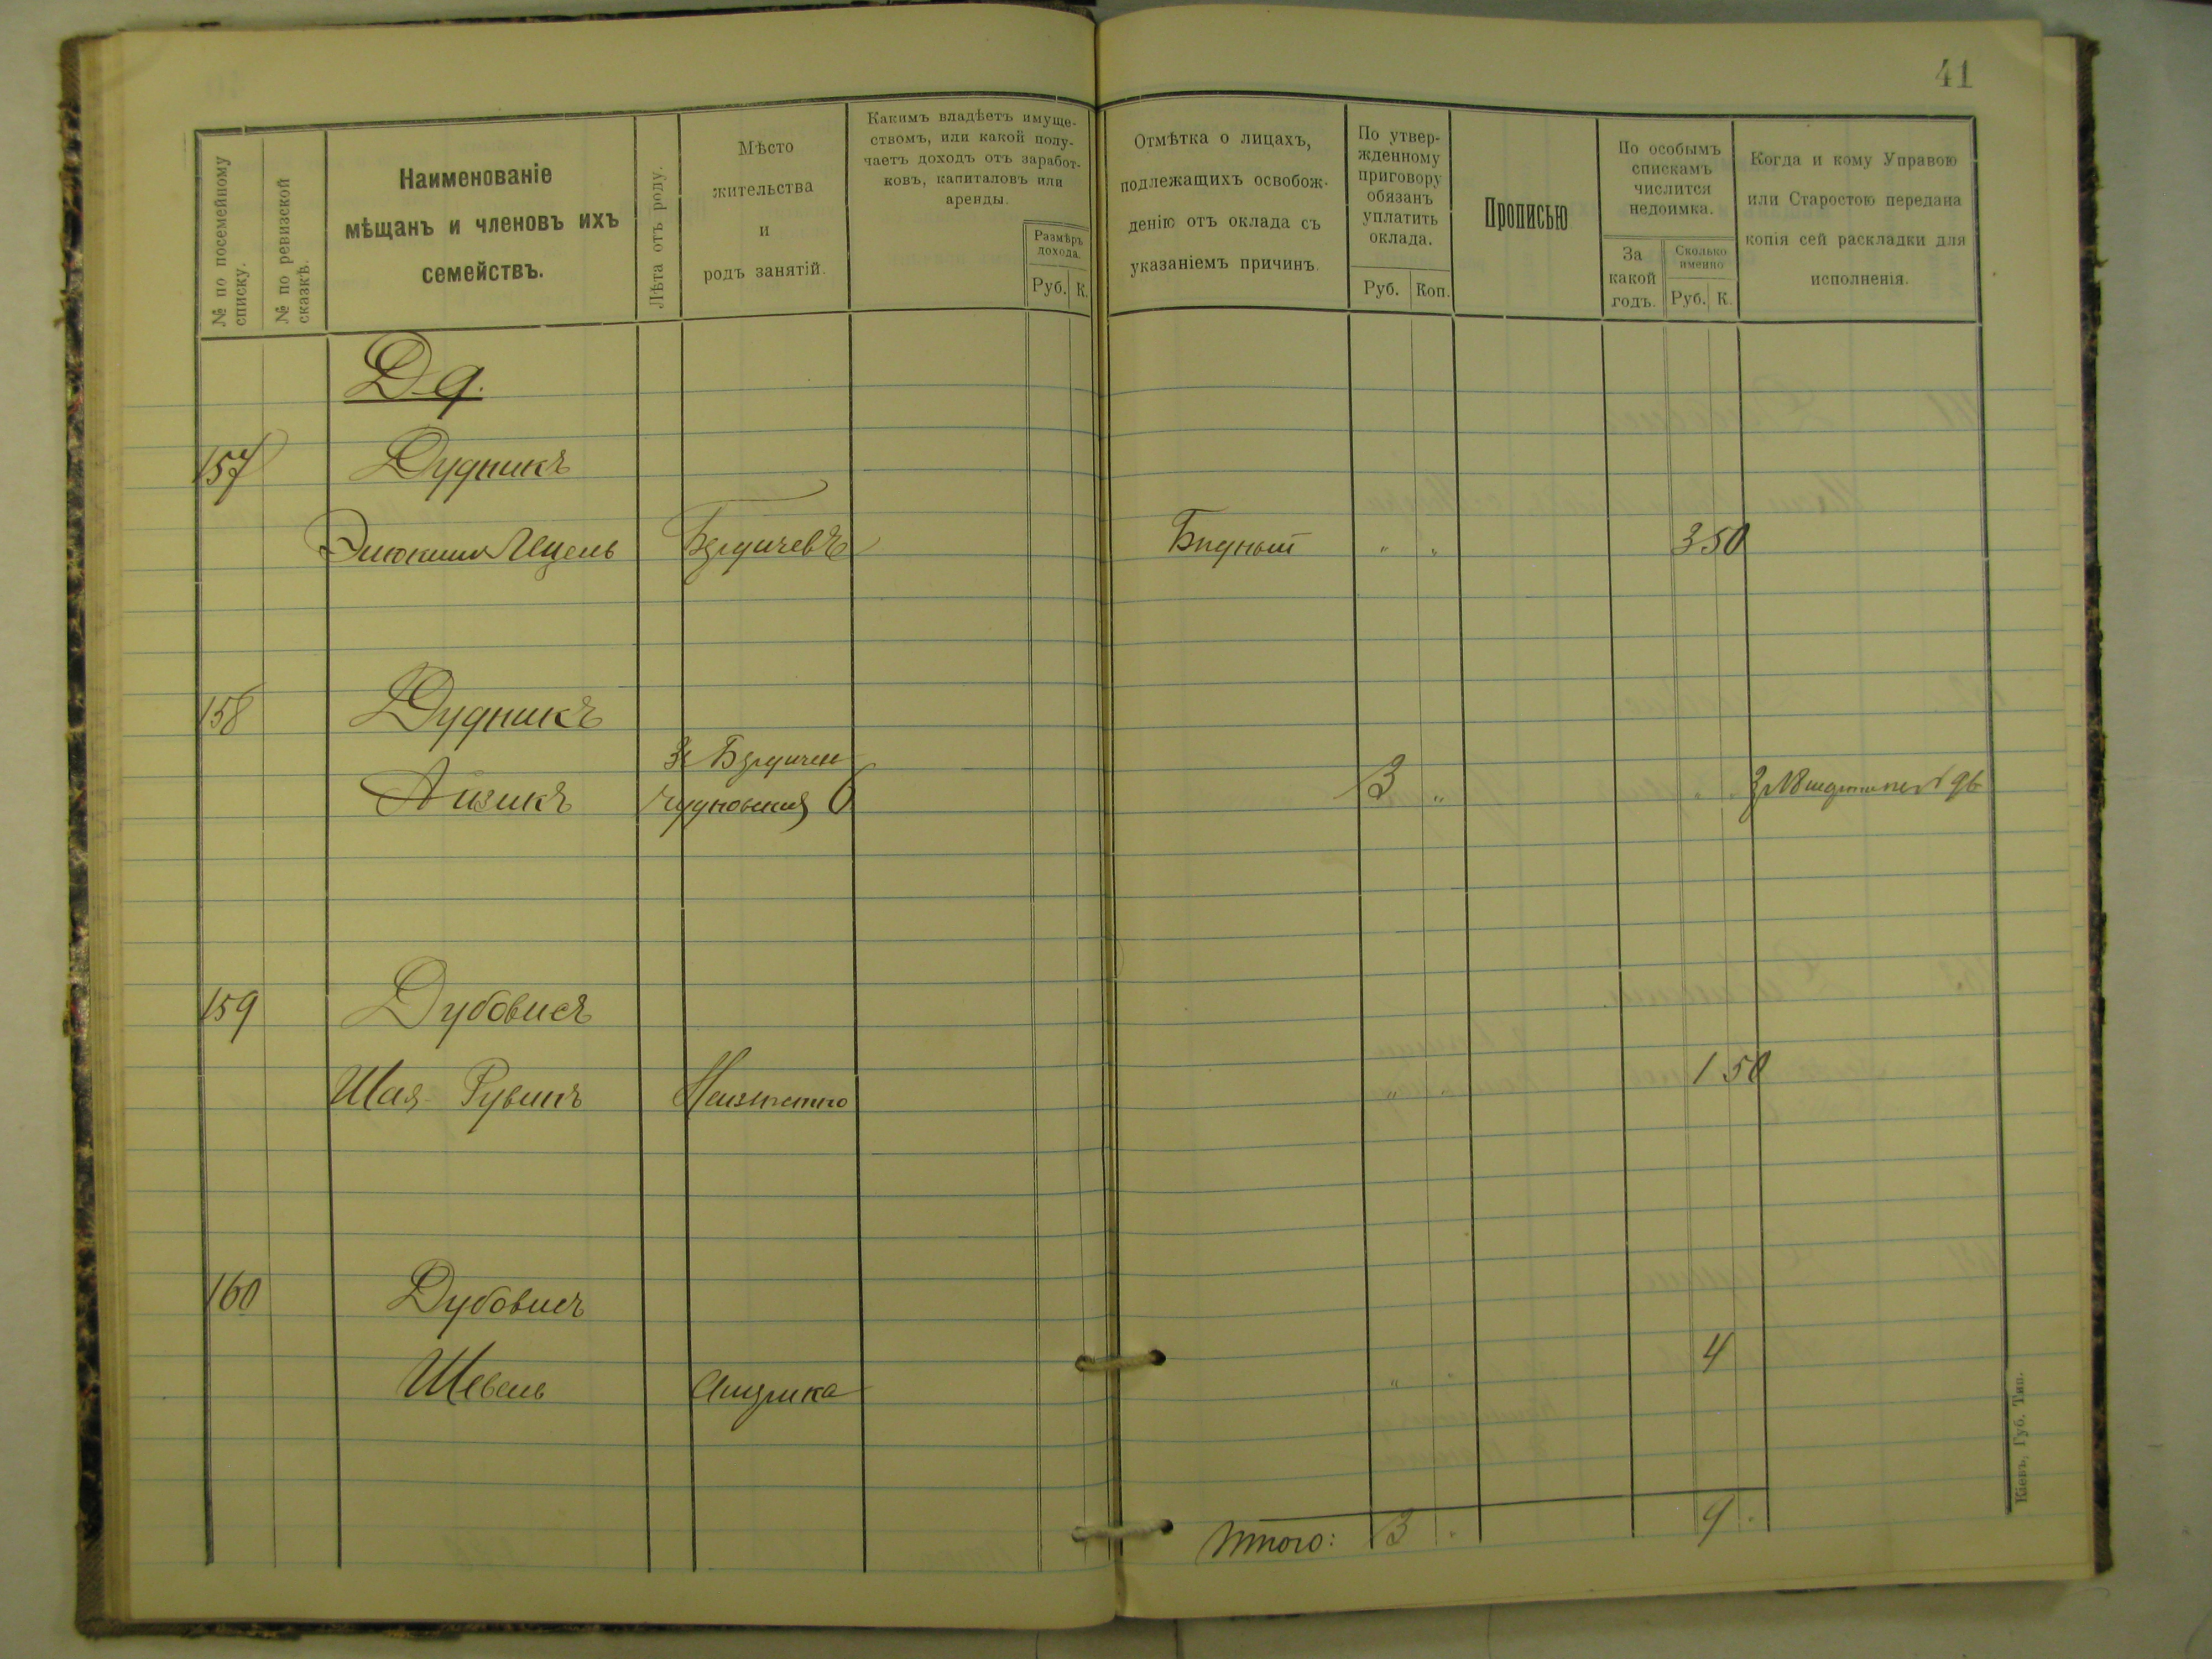 41
№ по посемейному списку.
№ по ревизской сказкѣ.
Наименованіе
мѣщанъ и членовъ ихъ
семействъ.
Лѣта отъ роду.
Мѣсто
жительства
и
родъ занятій.
Какимъ владѣетъ имуще-
ствомъ, или какой полу-
чаетъ доходъ отъ заработ-
ковъ, капиталовъ или
аренды.
Размѣръ
дохода.
Руб. К.
Отмѣтка о лицахъ,
подлежащихъ освобож-
денію отъ оклада съ
указаніемъ причинъ.
По утвер-
жденному
приговору
обязанъ
уплатить
оклада.
Руб. Коп.
Прописью
По особымъ
спискамъ
числится
недоимка.
За
какой
годъ.
Сколько
именно
Руб. К.
Когда и кому Управою
или Старостою передана
копія сей раскладки для
исполненія.
Д д.
157 Дудникъ
Ицель Бердичевъ Бѣдный " " 3 50
158 Дудникъ
Айзикъ 3 "
159 Дубовисъ
Шая-Рувинъ Неизвѣстно " " 1 50
160 Дубовисъ
Шевель Америка " " 4
Итого: 3 " 9
Кіевъ, Губ. Тип.